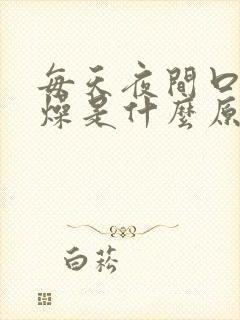 每天夜間口
燥是什麼原
白菘